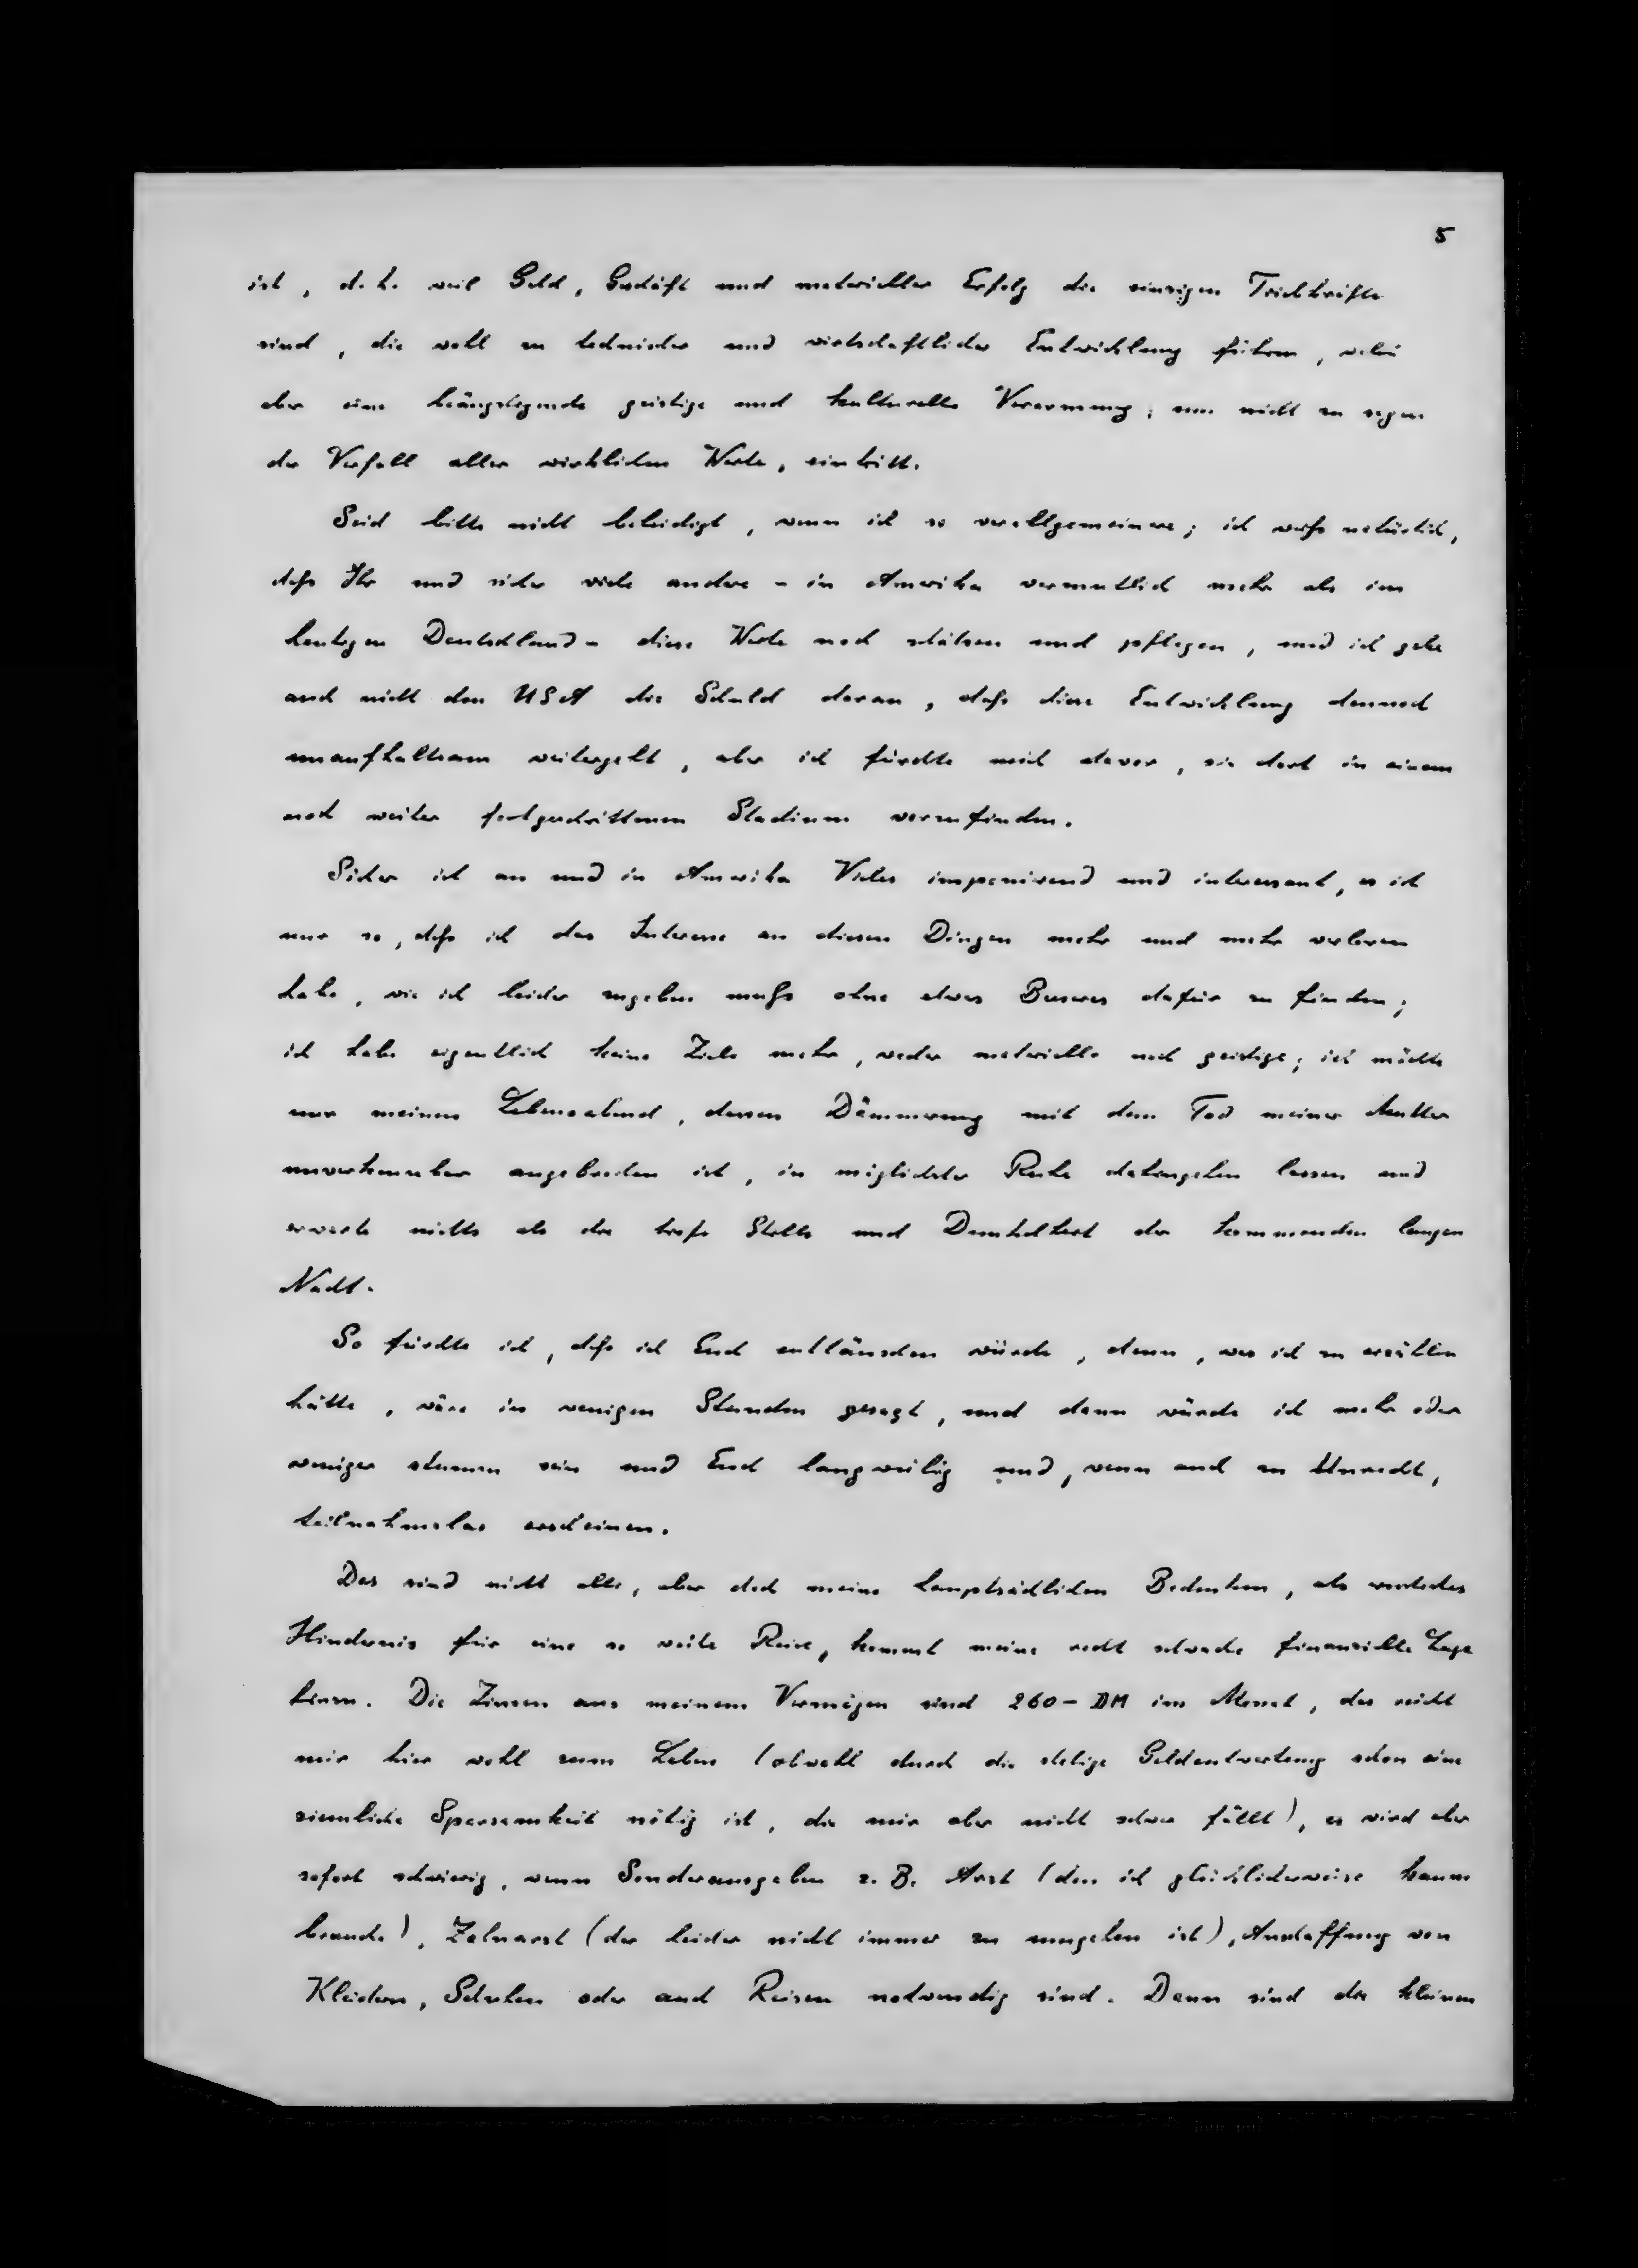 5
ist, d. h. weil Geld, Geschäft und materieller Erfolg die einzigen Triebkräfte
sind, die wohl zu technischer und wirtschaftlicher Entwicklung führen, wobei
aber eine beängstigende geistige und kulturelle Verarmung, um nicht zu sagen
der Verfall aller wirklichen Werte, eintritt.
Seid bitte nicht beleidigt, wenn ich so verallgemeinere; ich weiß natürlich,
daß Ihr und sicher viele andere – in Amerika vermutlich mehr als im
heutigen Deutschland – diese Werte noch schätzen und pflegen, und ich gebe
auch nicht den USA die Schuld daran, daß diese Entwicklung dennoch
unaufhaltsam weitergeht, aber ich fürchte mich davor, sie dort in einem
noch weiter fortgeschrittenen Stadium vorzufinden.
Sicher ist an und in Amerika Vieles imponierend und interessant, es ist
nur so, daß ich das Interesse an diesen Dingen mehr und mehr verloren
habe, wie ich leider zugeben muß ohne etwas Besseres dafür zu finden;
ich habe eigentlich keine Ziele mehr, weder materielle noch geistige; ich möchte
nur meinen Lebensabend, dessen Dämmerung mit dem Tod meiner Mutter
unverkennbar angebrochen ist, in möglichster Ruhe dahingehen lassen und
erwarte nichts als die tiefe Stille und Dunkelheit der kommenden langen
Nacht.
So fürchte ich, daß ich Euch enttäuschen würde, denn, was ich zu erzählen
hätte, wäre in wenigen Stunden gesagt, und dann würde ich mehr oder
weniger stumm sein und Euch langweilig und, wenn auch zu Unrecht,
teilnahmslos erscheinen.
Das sind nicht alle, aber doch meine hauptsächlichen Bedenken, als weiteres
Hindernis für eine so weite Reise, kommt meine recht schwache finanzielle Lage
hinzu. Die Zinsen aus meinem Vermögen sind 260– DM im Monat, das reicht
mir hier wohl zum Leben (obwohl durch die stetige Geldentwertung schon eine
ziemliche Sparsamkeit nötig ist, die mir aber nicht schwer fällt), es wird aber
sofort schwierig, wenn Sonderausgaben z. B. Arzt (den ich glücklicherweise kaum
brauche), Zahnarzt (der leider nicht immer zu umgehen ist), Anschaffung von
Kleidern, Schuhen oder auch Reisen notwendig sind. Dann sind die kleinen